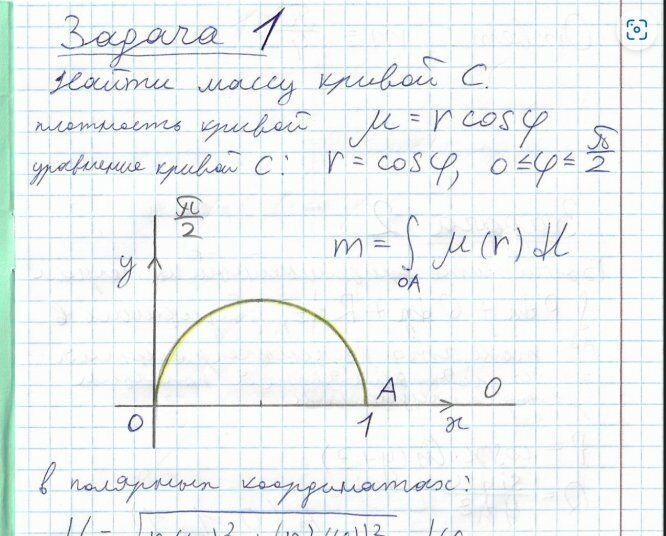 Задача 1
Найти массу кривой C.
плотность кривой μ = r cosφ
уравнение кривой C: r = cosφ, 0 ≤ φ ≤ π/2
π/2
y
m = ∫OA μ(r) dl
A
0
0
1
x
в полярных координатах: